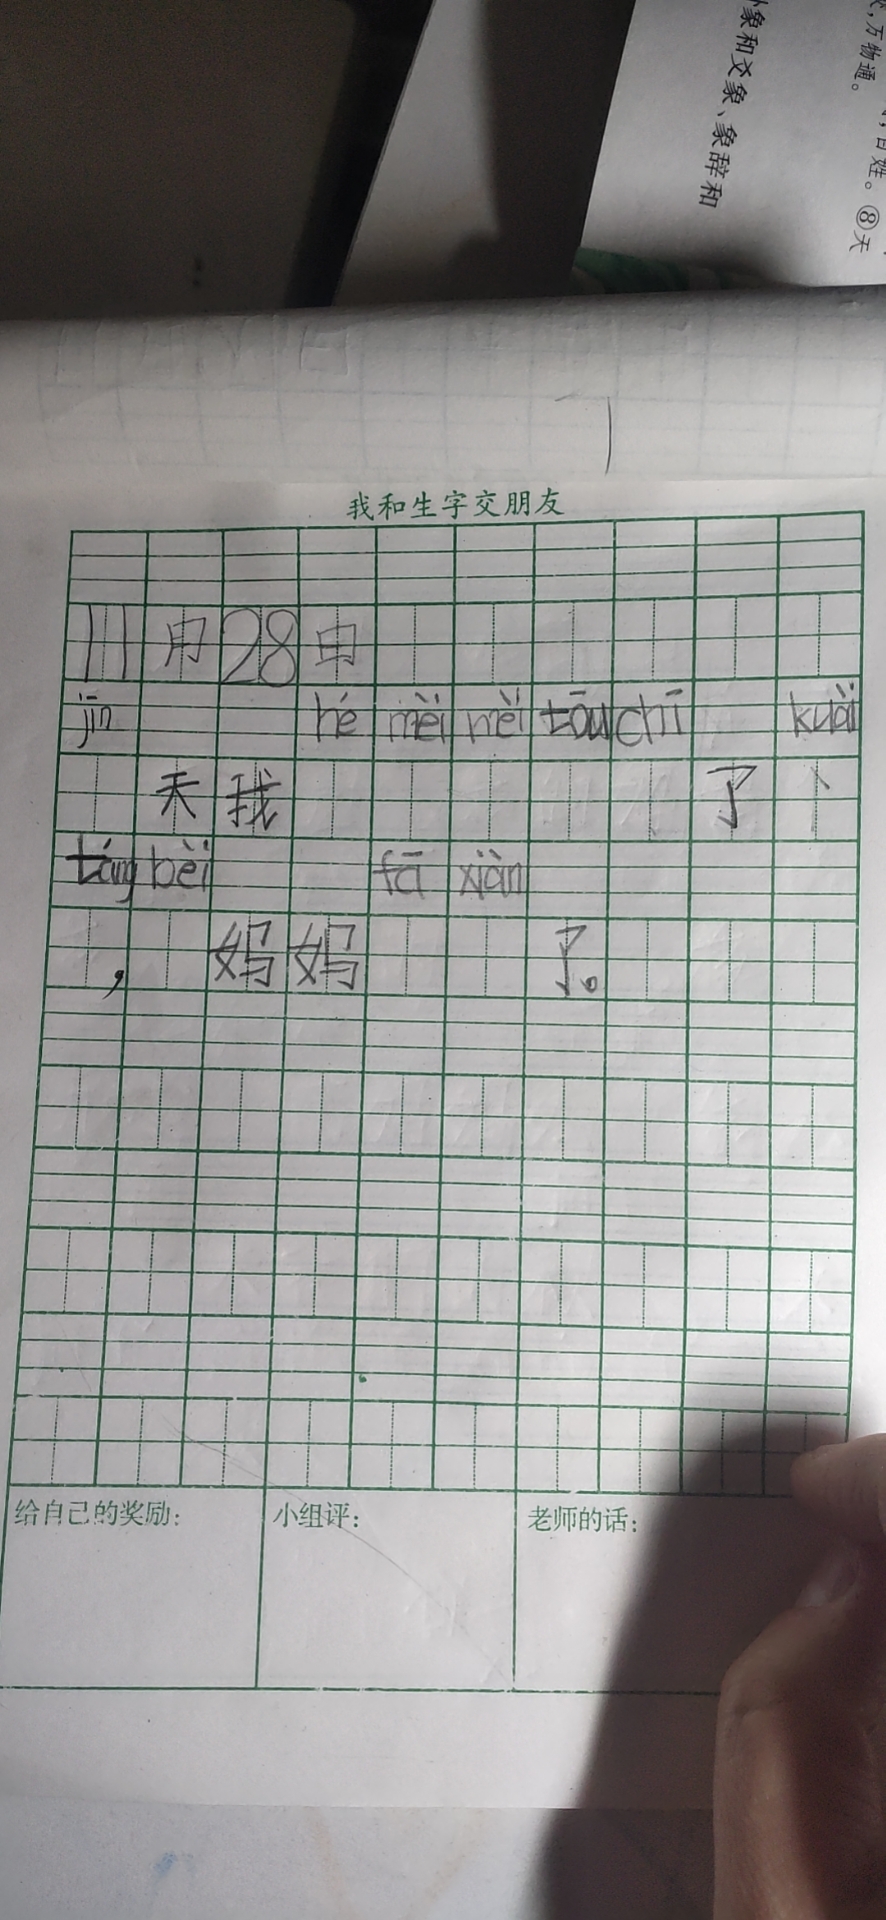 象和爻象、象辞和
万物通。
百姓。⑧天
我和生字交朋友
11月28日
jīn hé mèi mèi tōu chī kuài
天我 了个
táng bèi fā xiàn
，妈妈 了。
给自己的奖励：
小组评：
老师的话：